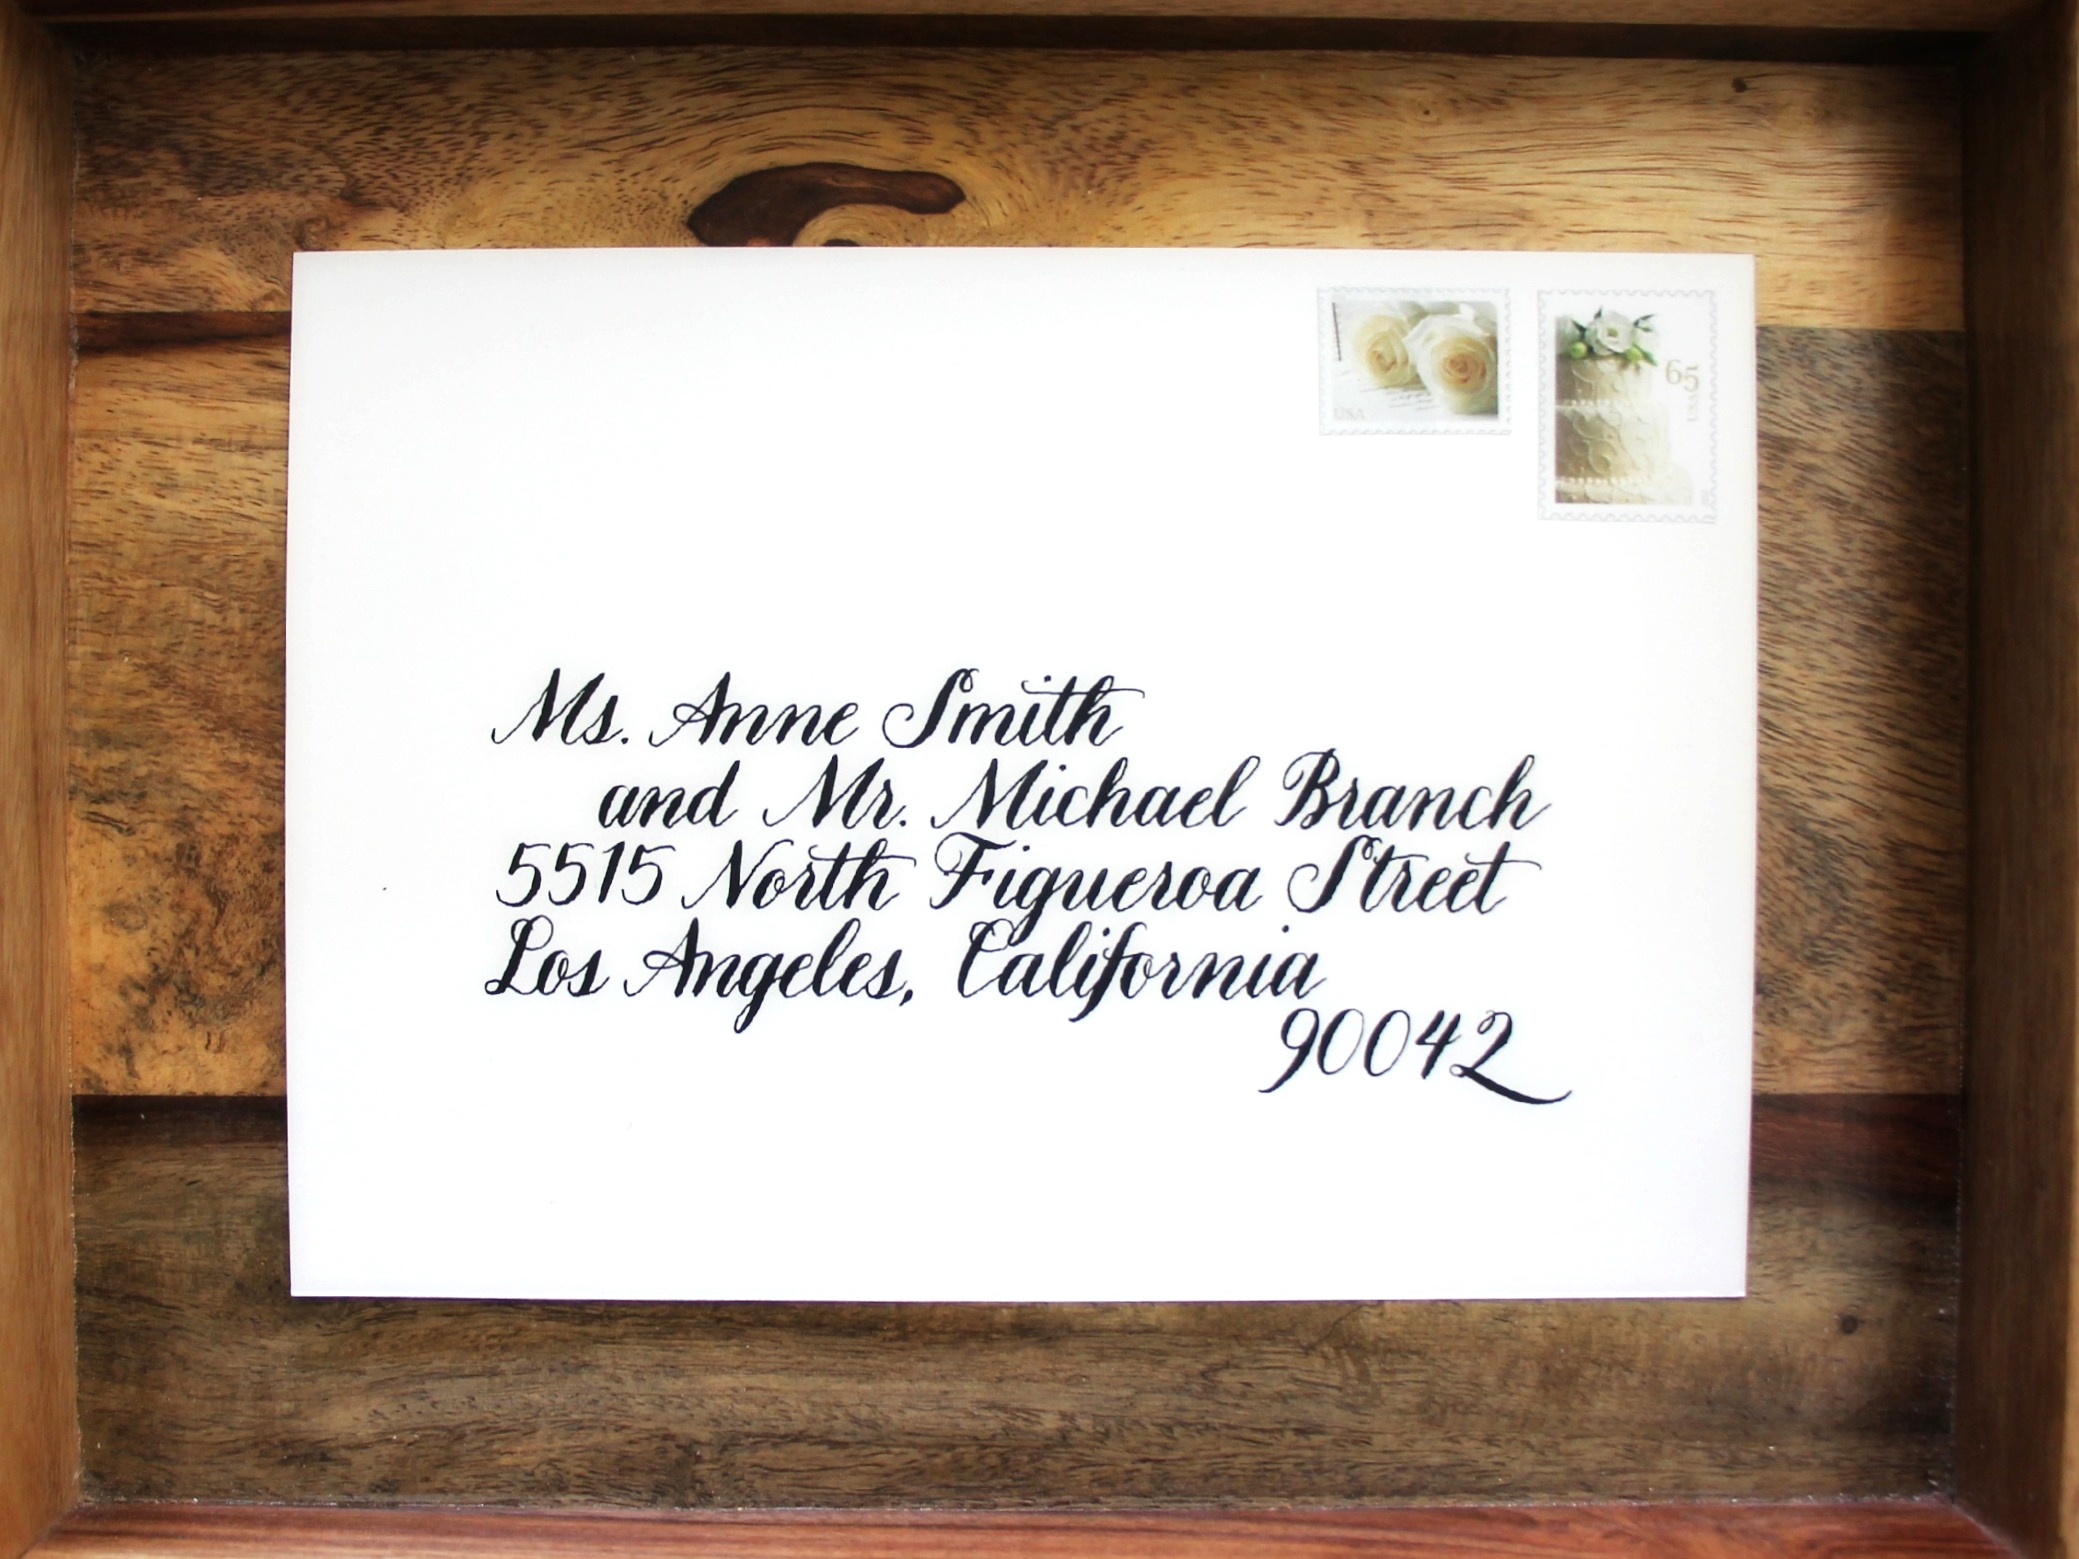 USA
65
USA
Ms. Anne Smith
and Mr. Michael Branch
5515 North Figueroa Street
Los Angeles, California
90042